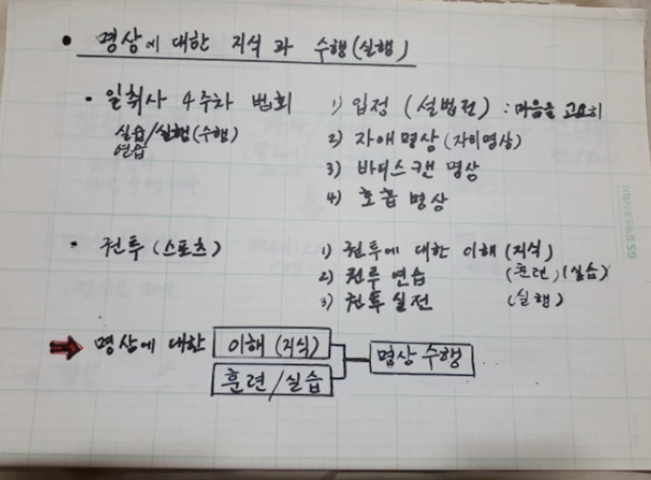 • 명상에 대한 지식과 수행(실행)
• 일취사 4주차 법회 1) 입정 (설법전) : 마음을 고요히
실습/실행(수행) 2) 자애명상(자비명상)
연습
3) 바디스캔 명상
4) 호흡 명상
• 권투 (스포츠) 1) 권투에 대한 이해 (지식)
2) 권투 연습 (훈련)(실습)
3) 권투 실전 (실행)
명상에 대한 이해 (지식) 명상 수행
훈련/실습